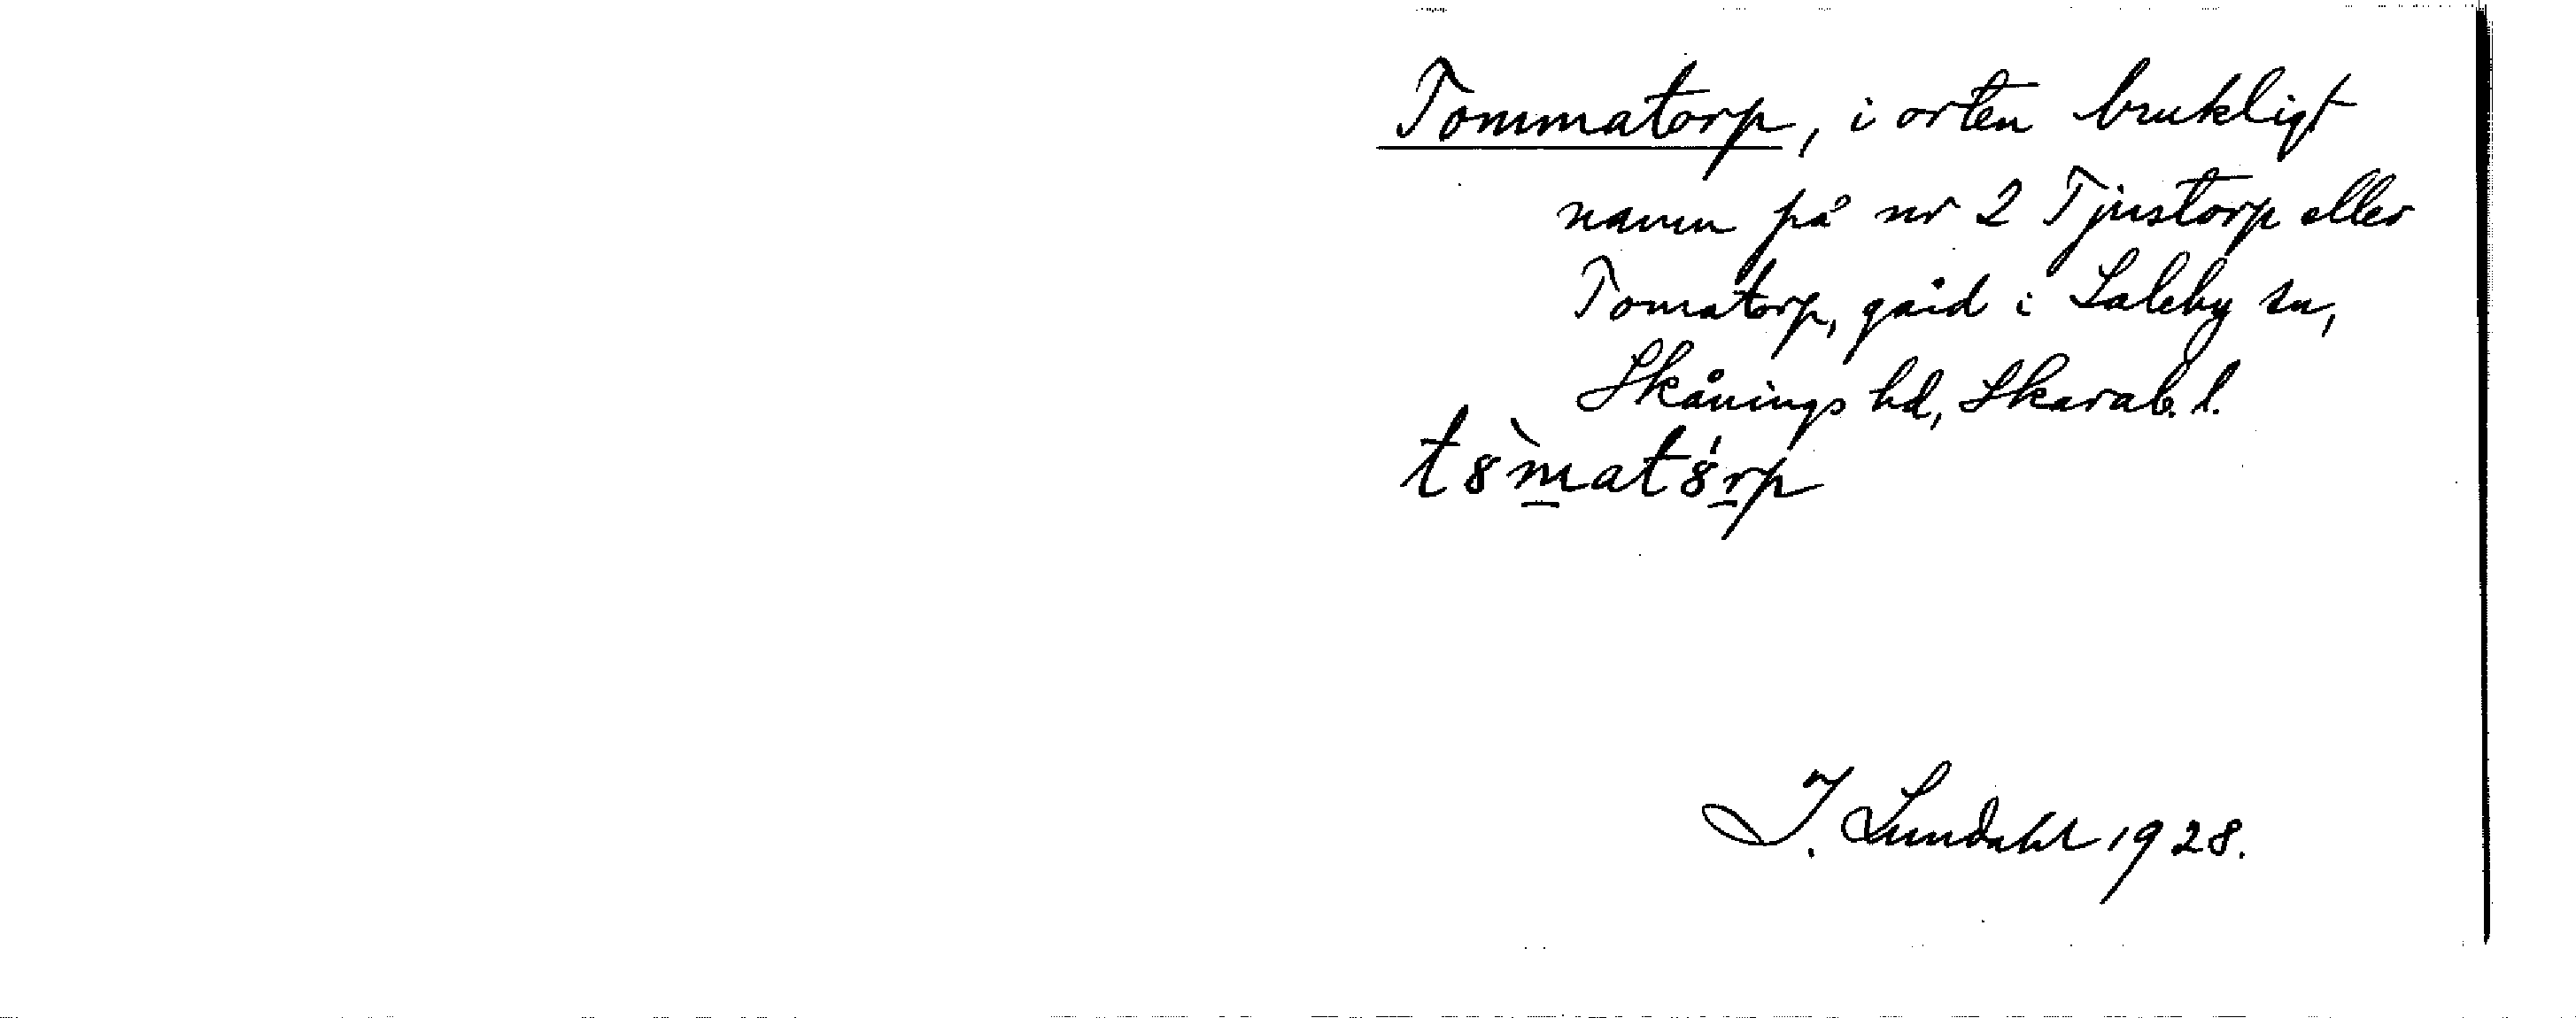 Tommatorp, i orten brukligt
namn på nr 2 Tjustorp eller
Tomatorp, gård i Saleby sn,
Skånings hd, Skarab. l.
t8̀m̲at8́r̲p
I. Lundahl 1928.